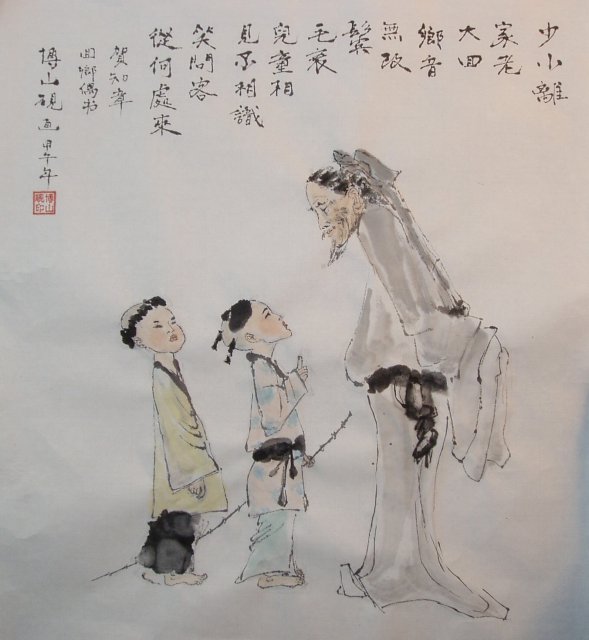 少小離
家老
大回
鄉音
無改
鬢
毛衰
兒童相
見不相識
笑問客
從何處來
賀知章
回鄉偶書
博山硯画甲午年